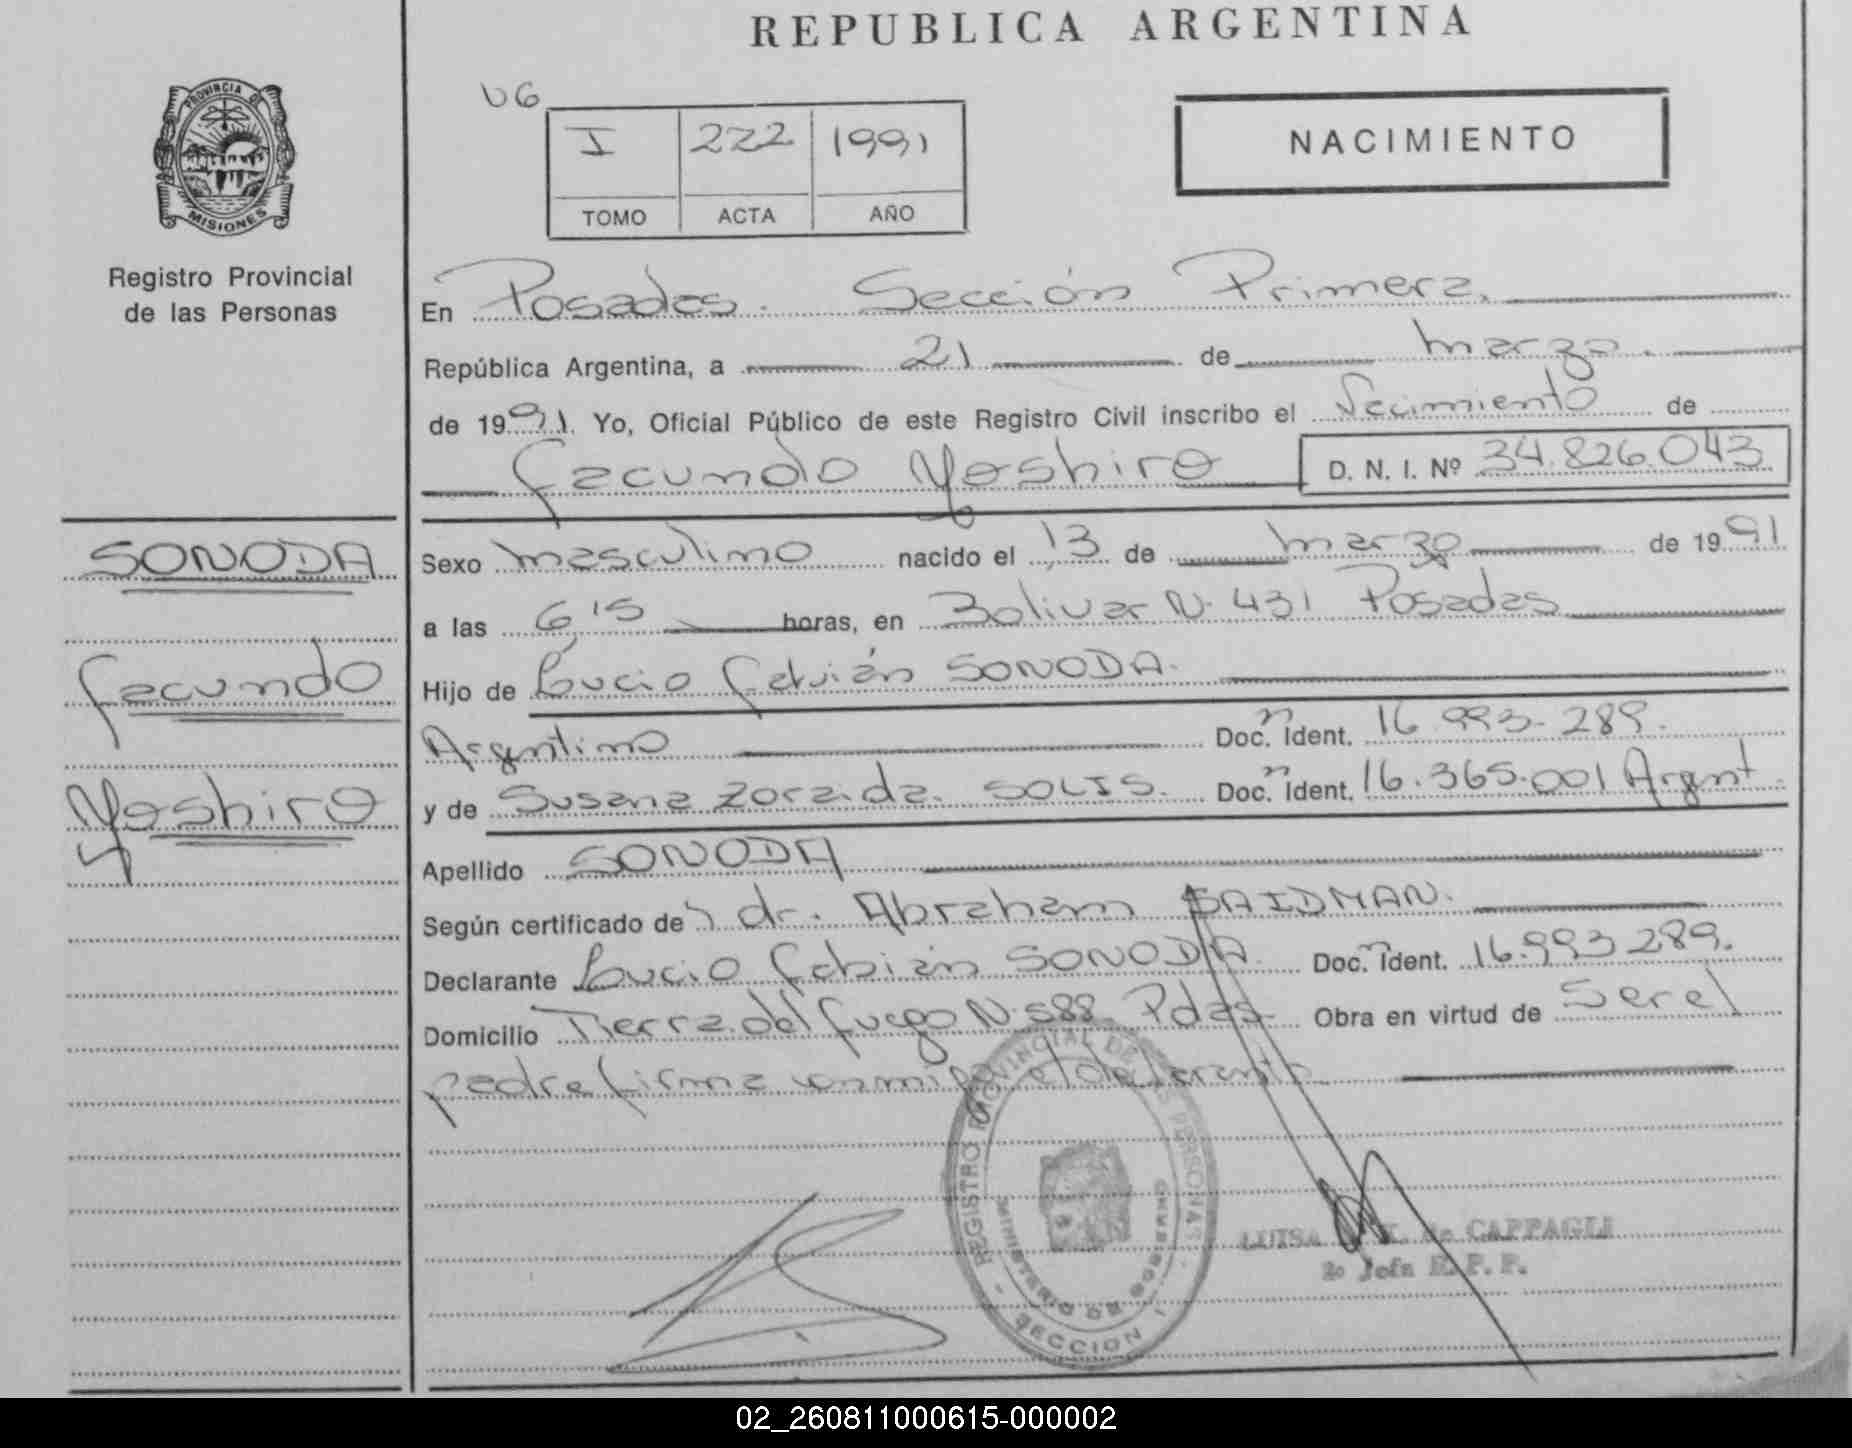 REPUBLICA ARGENTINA
PROVINCIA DE
MISIONES
Registro Provincial
de las Personas
UG
I 222 1991
TOMO ACTA AÑO
NACIMIENTO
En Posadas. Sección Primera.
República Argentina, a 21 de marzo.
de 1991. Yo, Oficial Público de este Registro Civil inscribo el Nacimiento de
Facundo Yoshiro D. N. I. Nº 34.826.043
SONODA
Facundo
Yoshiro
Sexo masculino nacido el 13 de marzo de 1991
a las 6'15 horas, en Bolivar N. 431 Posadas
Hijo de Lucio Fabián SONODA.
Argentino Doc. n Ident. 16.993.289.
y de Susana Zoraida. SOLIS. Doc. n Ident. 16.365.001 Argent.
Apellido SONODA
Según certificado de dr. Abraham SAIDMAN.
Declarante Lucio Fabián SONODA. Doc. n Ident. 16.993289.
Domicilio Tierra del fuego N.588. Pdas. Obra en virtud de Ser el
padre firma conmigo el declarante
REGISTRO PROVINCIAL DE LAS PERSONAS
MINISTERIO DE GOBIERNO
SECCION 1
LUISA de CAPPAGLI
2º Jefa R. P. P.
02_260811000615-000002